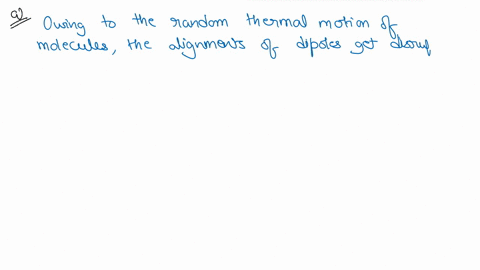 a) Owing to the random thermal motion of
molecules, the alignments of dipoles get disrup